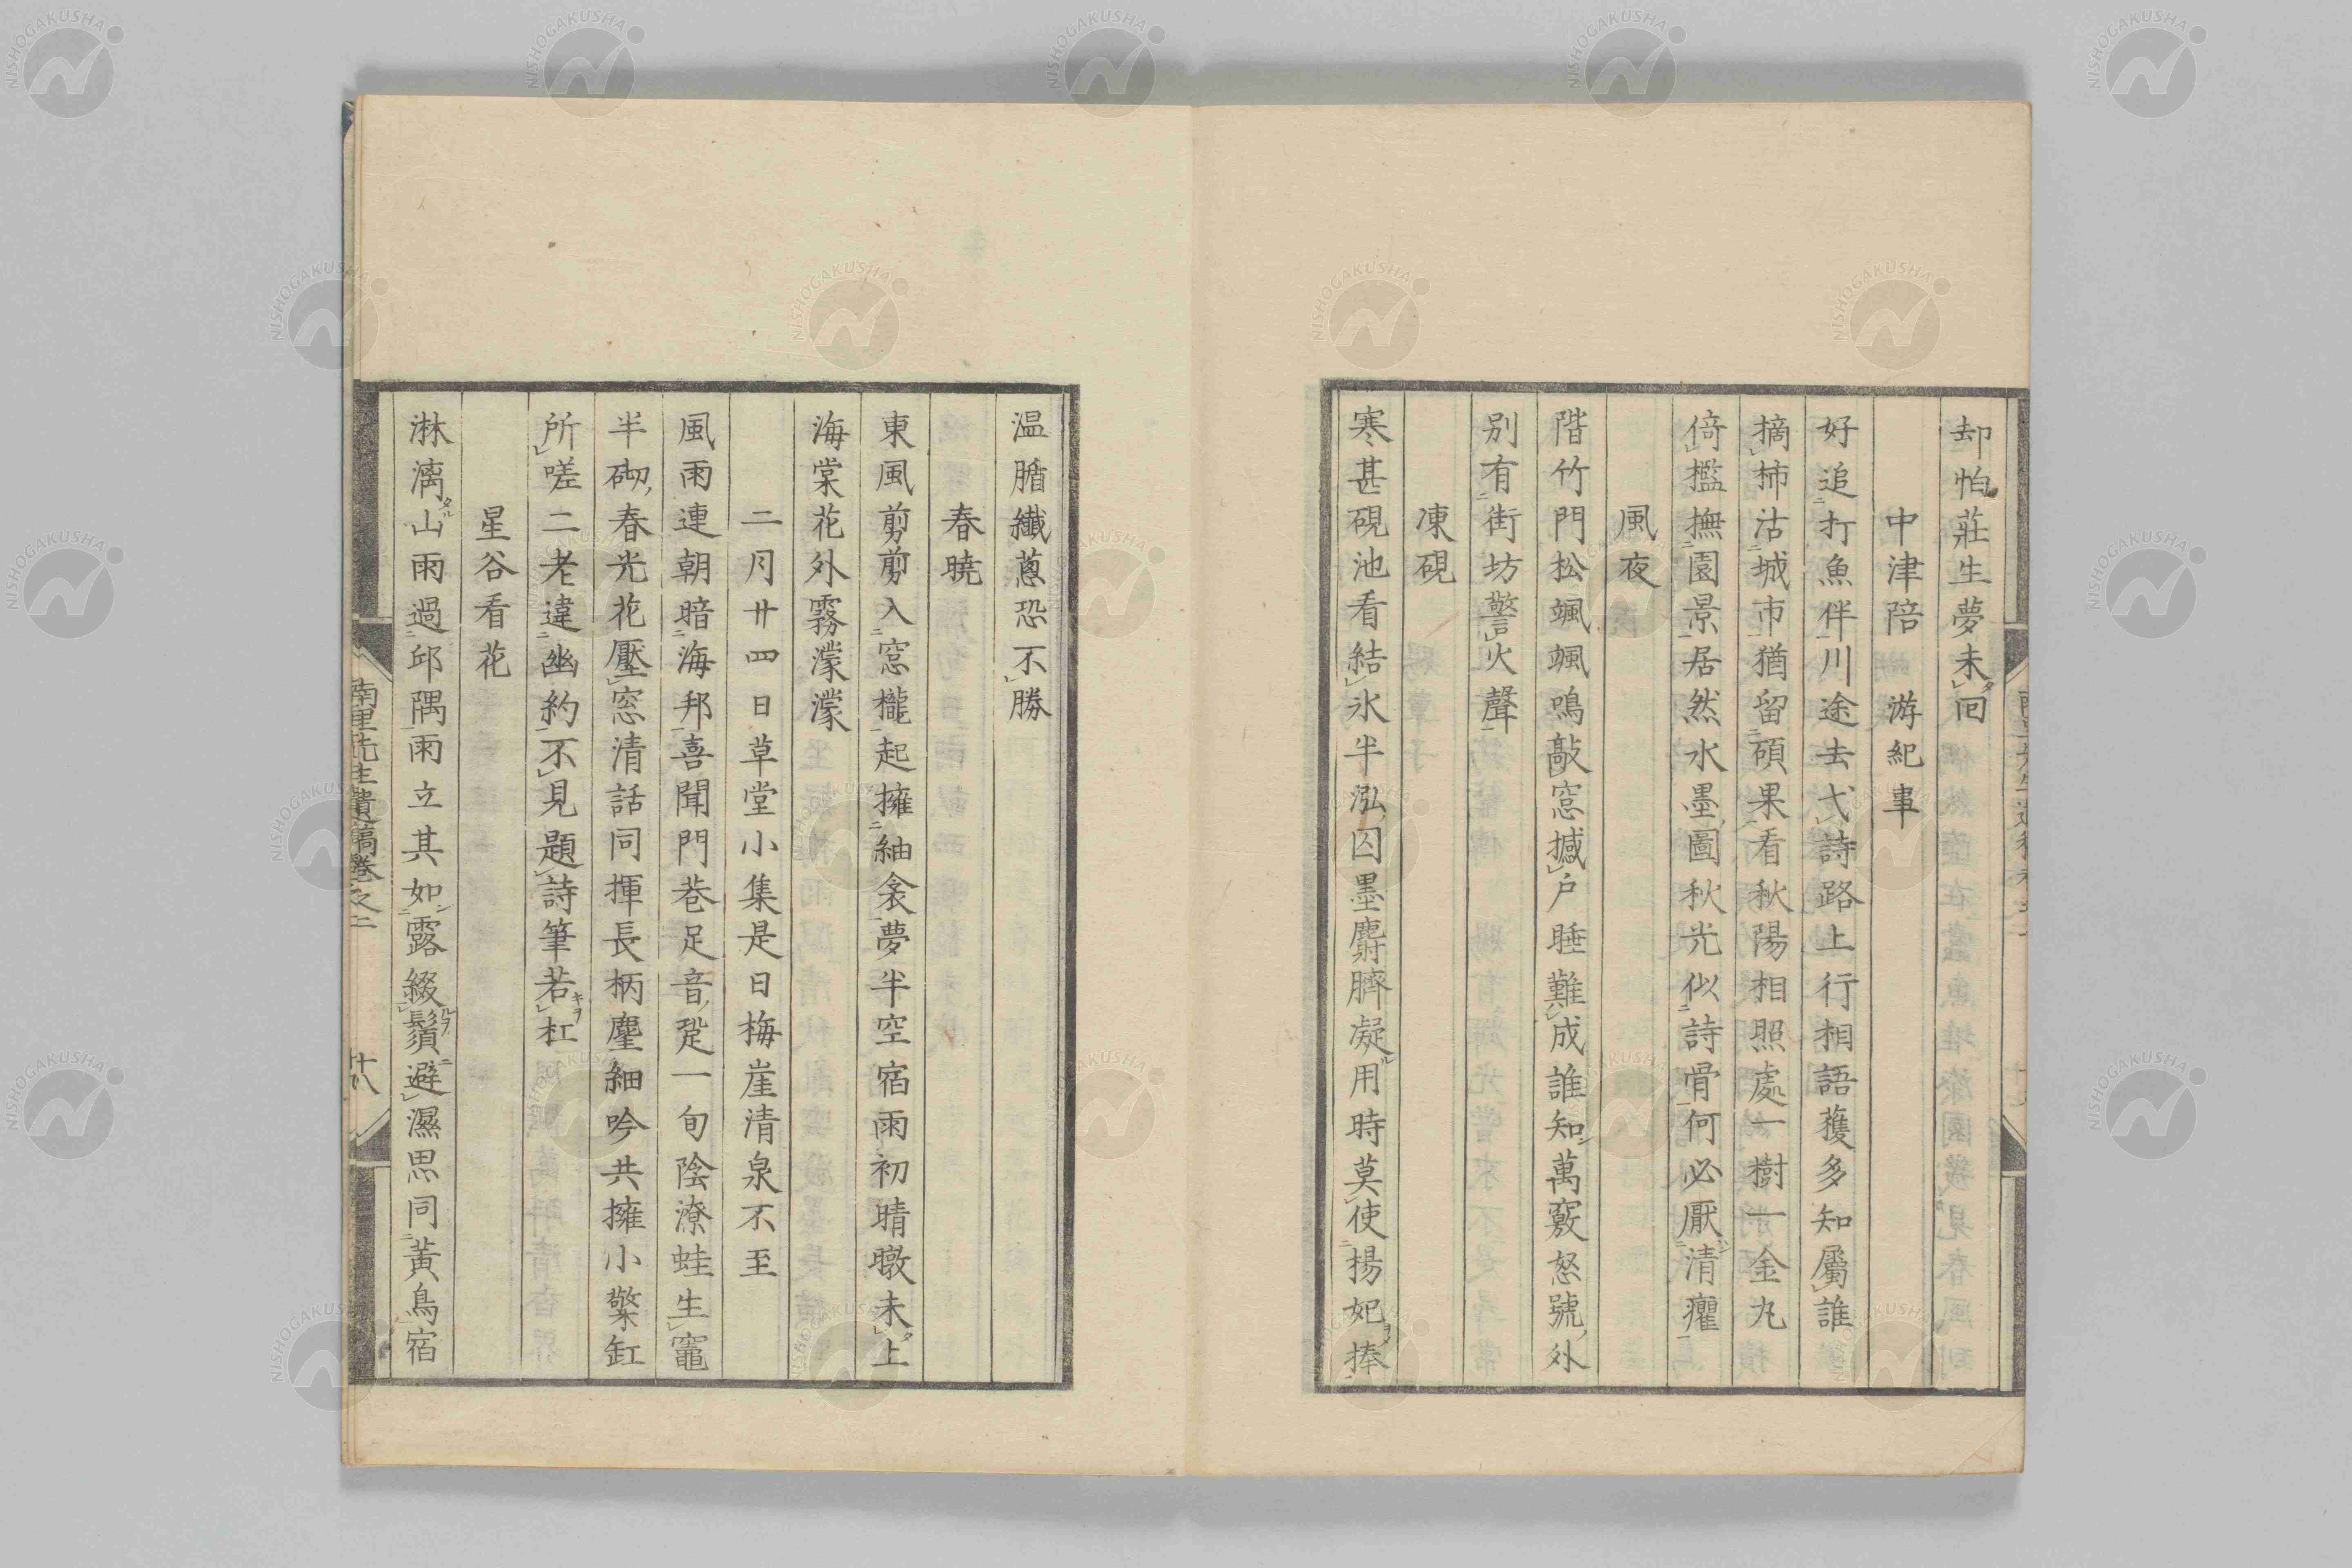 却怕莊生夢未回
中津陪　游紀事
好追打魚伴川途去弋詩路上行相語獲多知屬誰
摘柿沽城市猶留碩果看秋陽相照處一樹一金丸
倚檻撫園景居然水墨圖秋光似詩骨何必厭清癯
風夜
階竹門松颯颯鳴敲窓撼戶睡難成誰知萬竅怒號外
別有街坊警火聲
凍硯
寒甚硯池看結氷半泓囚墨麝臍凝用時莫使揚妃捧
温腯纖蔥恐不勝
春曉
東風剪剪入窓櫳起擁紬衾夢半空宿雨初晴暾未上
海棠花外霧濛濛
二月廿四日草堂小集是日梅崖清泉不至
風雨連朝暗海邦喜聞門巷足音跫一旬陰潦蛙生竈
半砌春光花壓窓清話同揮長柄麈細吟共擁小檠缸
所嗟二老違幽約不見題詩筆若杠
星谷看花
淋漓山雨過邱隅雨立其如露綴鬚避濕思同黃鳥宿
南里先生遺稿卷之二
十八
NISHOGAKUSHA